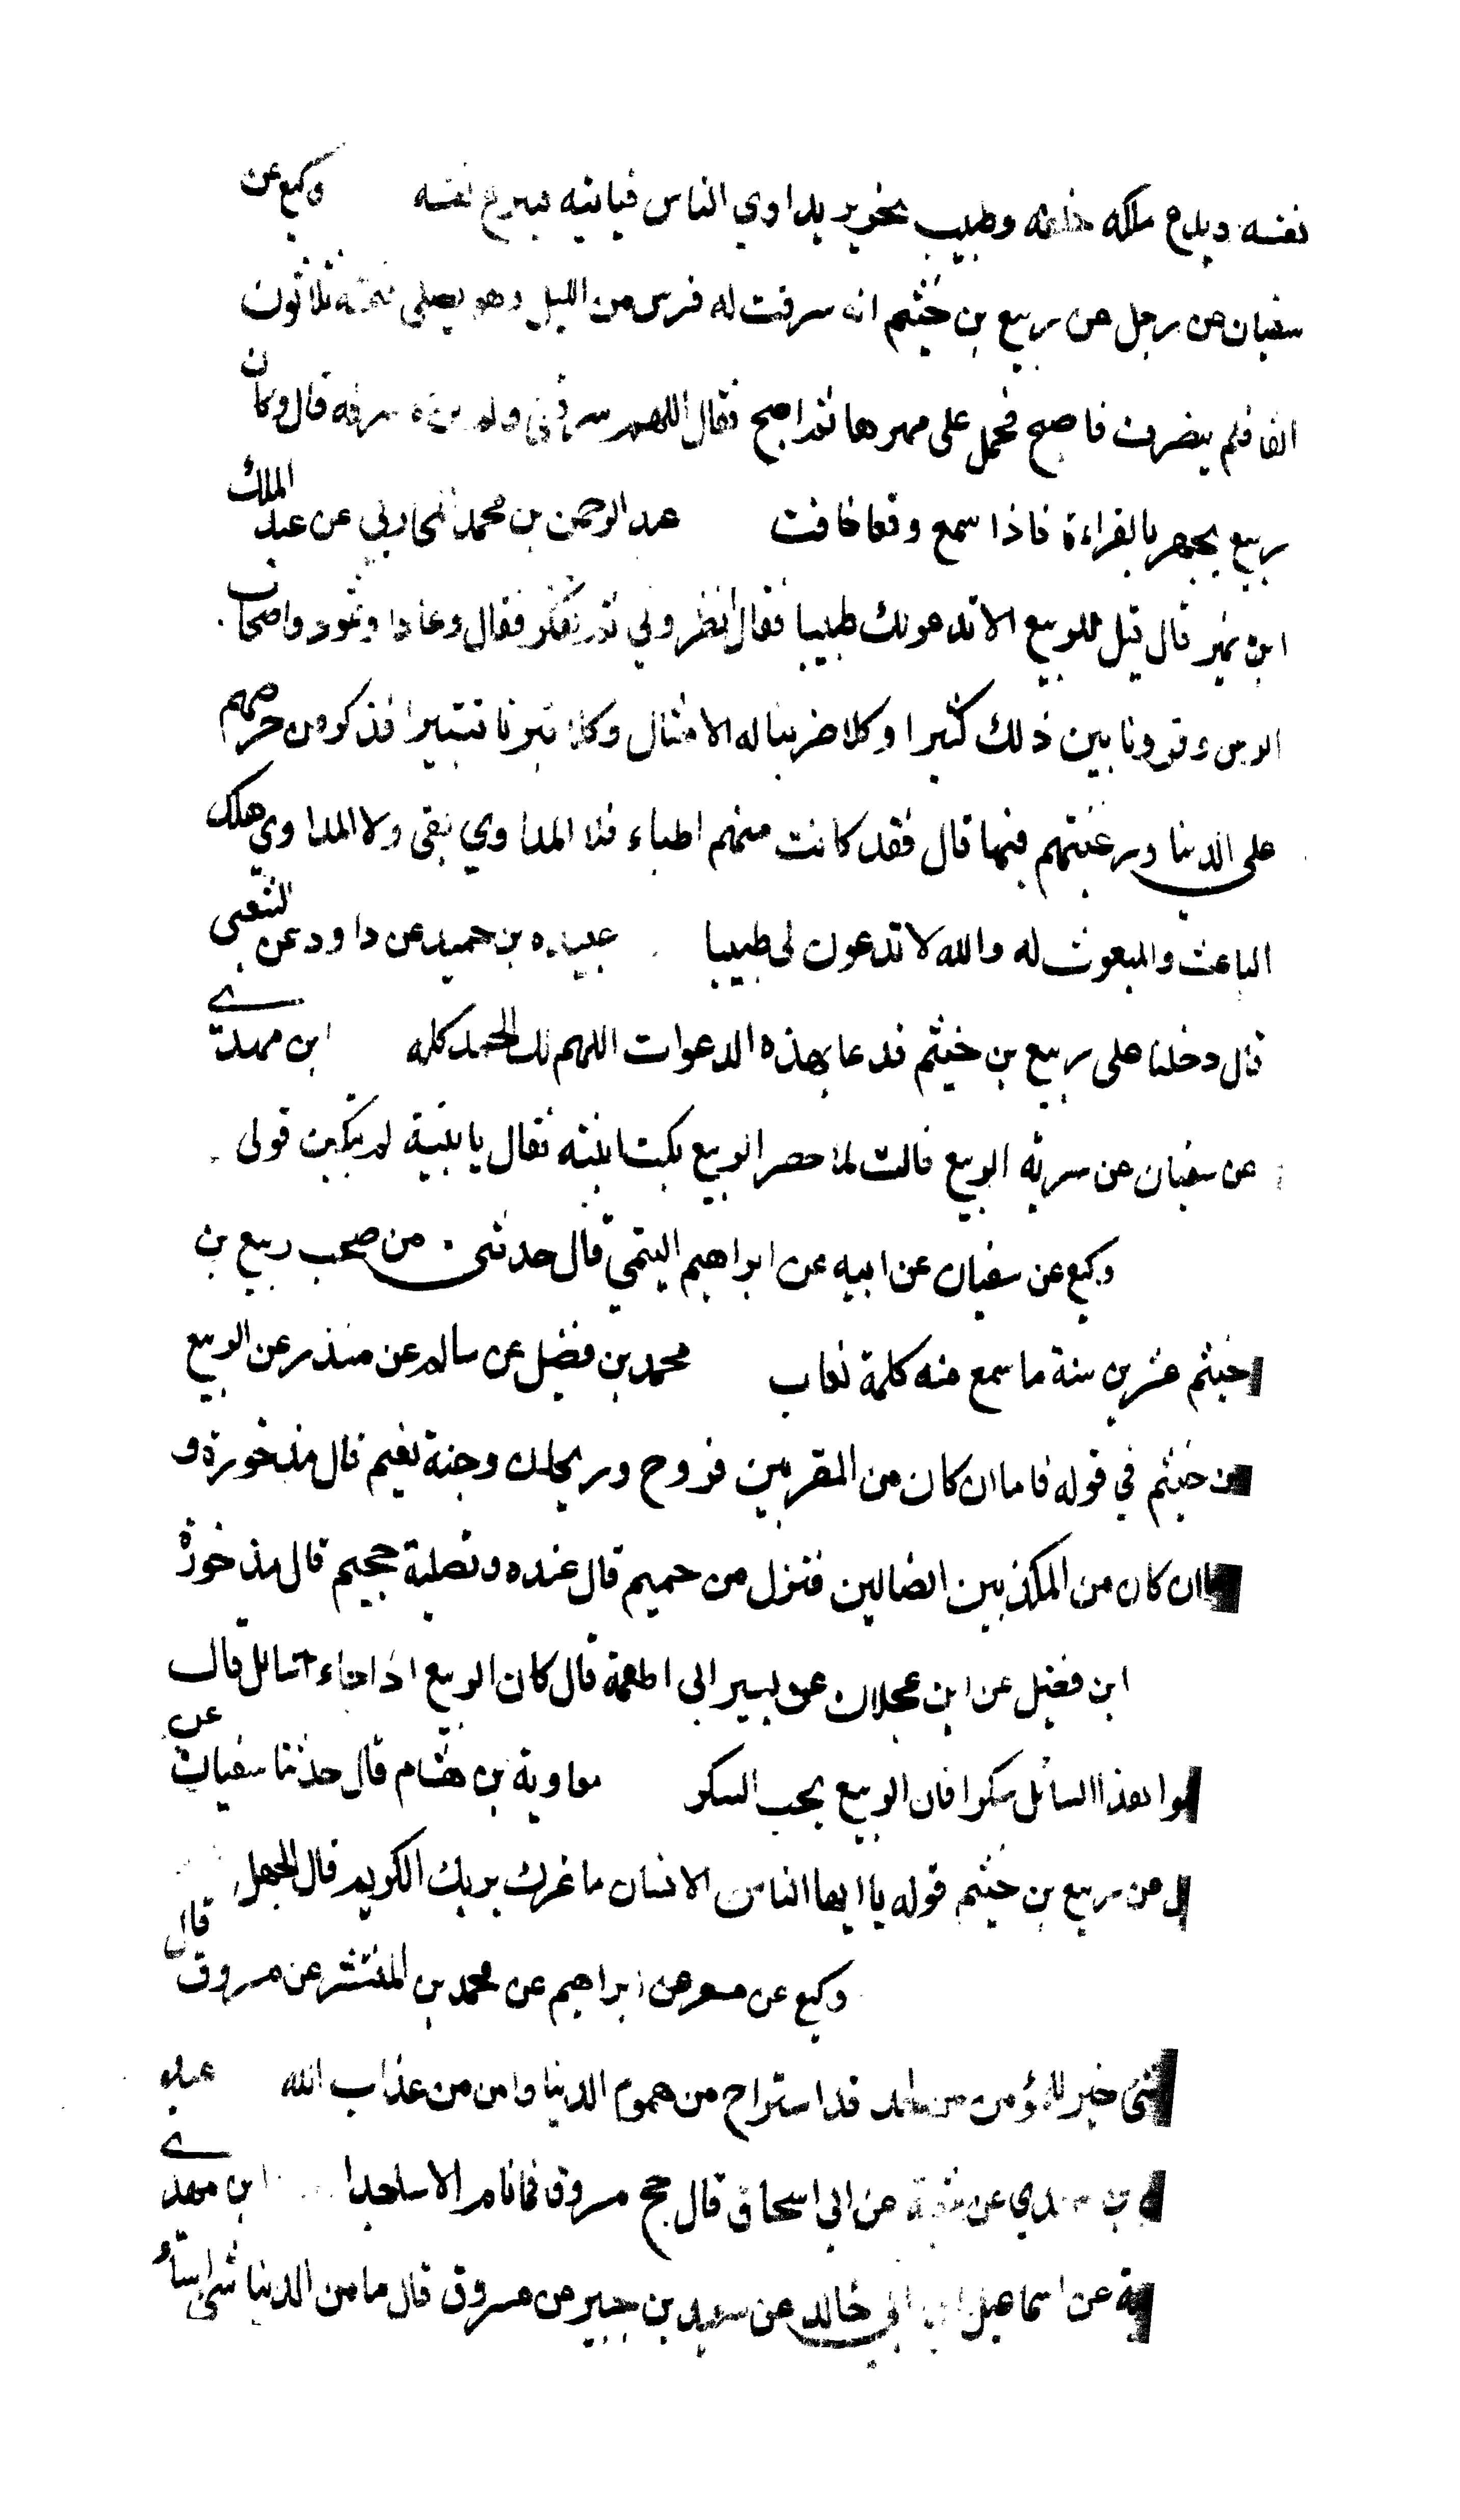 نفسه ويدع ملكه خلفه وطبيب نحرير يداوي الناس فياتيه فيرع نفسه وكيع عن
سفيان عن رجل عن ربيع بن خثيم انه سرقت له فرس من الليل وهو يصلي ثمنه ثلاثون
الفا فلم ينصرف فاصبح فحمل على مهرها ثم اصبح فقال اللهم سرقني ولم سرقه قال وكان
ربيع يجهر بالقراءة فاذا سمع وقعا خافت عبد الرحمن بن محمد المحاربي عن عبد الملك
ابن عمير قال قيل للربيع الا تدعو لك طبيبا فقال انظروني ثم تفكر فقال وعادا وثمود واصحاب
الرس وقرونا بين ذلك كثيرا وكلا ضربنا له الامثال وكلا تبرنا تتبيرا فذكر من حرصهم
على الدنيا ورغبتهم فيها قال فقد كانت منهم اطباء فلا المداوي بقي ولا المداوي هلك
الناعث والمنعوث له والله لا تدعون لي طبيبا عبيده بن حميد عن داود عن الشعبي
قال دخلنا على ربيع بن خيثم فدعا بهذه الدعوات اللهم لك الحمد كله ابن مهدي
عن سفيان عن سرية الربيع قالت لما حضر الربيع بكت ابنته فقال يا بنية لم تبكين قولي
وكيع عن سفيان عن ابيه عن ابراهيم التيمي قال حدثني من صحب ربيع بن
خيثم عشرين سنة ما سمع منه كلمة تعاب محمد بن فضيل عن سالم عن منذر عن الربيع
بن خيثم في قوله فاما ان كان من المقربين فروح وريحان وجنة نعيم قال مذخورة و
اما ان كان من المكذبين الضالين فنزل من حميم قال عنده وتصلية جحيم قال مذخورة
ابن فضيل عن ابن عجلان عن بسير ابي اطعمة قال كان الربيع اذا جاءه سائل قال
هذا السائل سكرا فان الربيع يحب السكر معاوية بن هشام قال حدثنا سفيان عن
عن ربيع بن خيثم قوله يا ايها الناس الانسان ما غرك بربك الكريم قال الجهل
وكيع عن مسعر عن ابراهيم عن محمد بن المنتشر عن مسروق قال
شي خير للمؤمن من لحد قد استراح من هموم الدنيا وامن من عذاب الله عبد
بن مهدي عن شعبة عن ابي اسحاق قال حج مسروق فما نام الا ساجدا ابن مهدي
عن اسماعيل ابن ابي خالد عن سعيد بن جبير عن مسروق قال ما من الدنيا شي